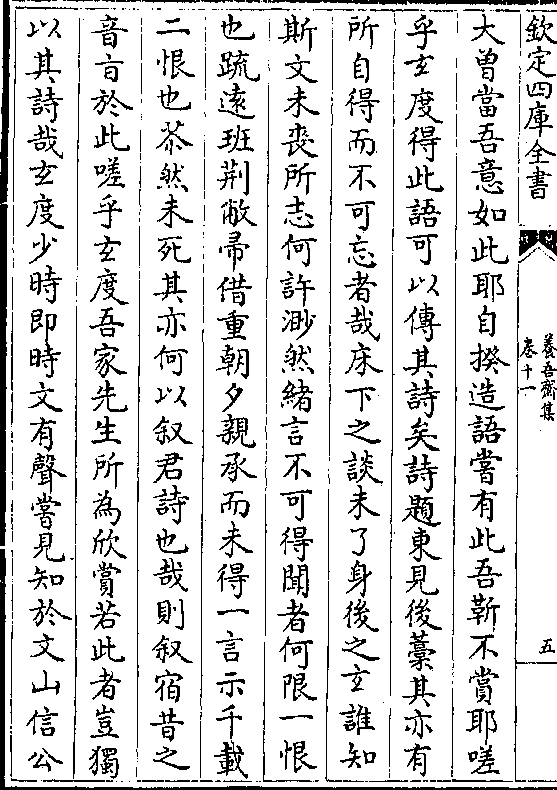 欽定四庫全書
養吾齋集
卷十一
五
大曽當吾意如此耶自揆造語嘗有此吾靳不賞耶嗟
乎玄度得此語可以傳其詩矣詩題東見後藁其亦有
所自得而不可忘者哉床下之談未了身後之玄誰知
斯文未喪所志何許渺然緒言不可得聞者何限一恨
也䟽逺班荆敝帚借重朝夕親承而未得一言示千載
二恨也苶然未死其亦何以叙君詩也哉則叙宿昔之
音旨於此嗟乎玄度吾家先生所為欣賞若此者豈獨
以其詩哉玄度少時即時文有聲嘗見知於文山信公